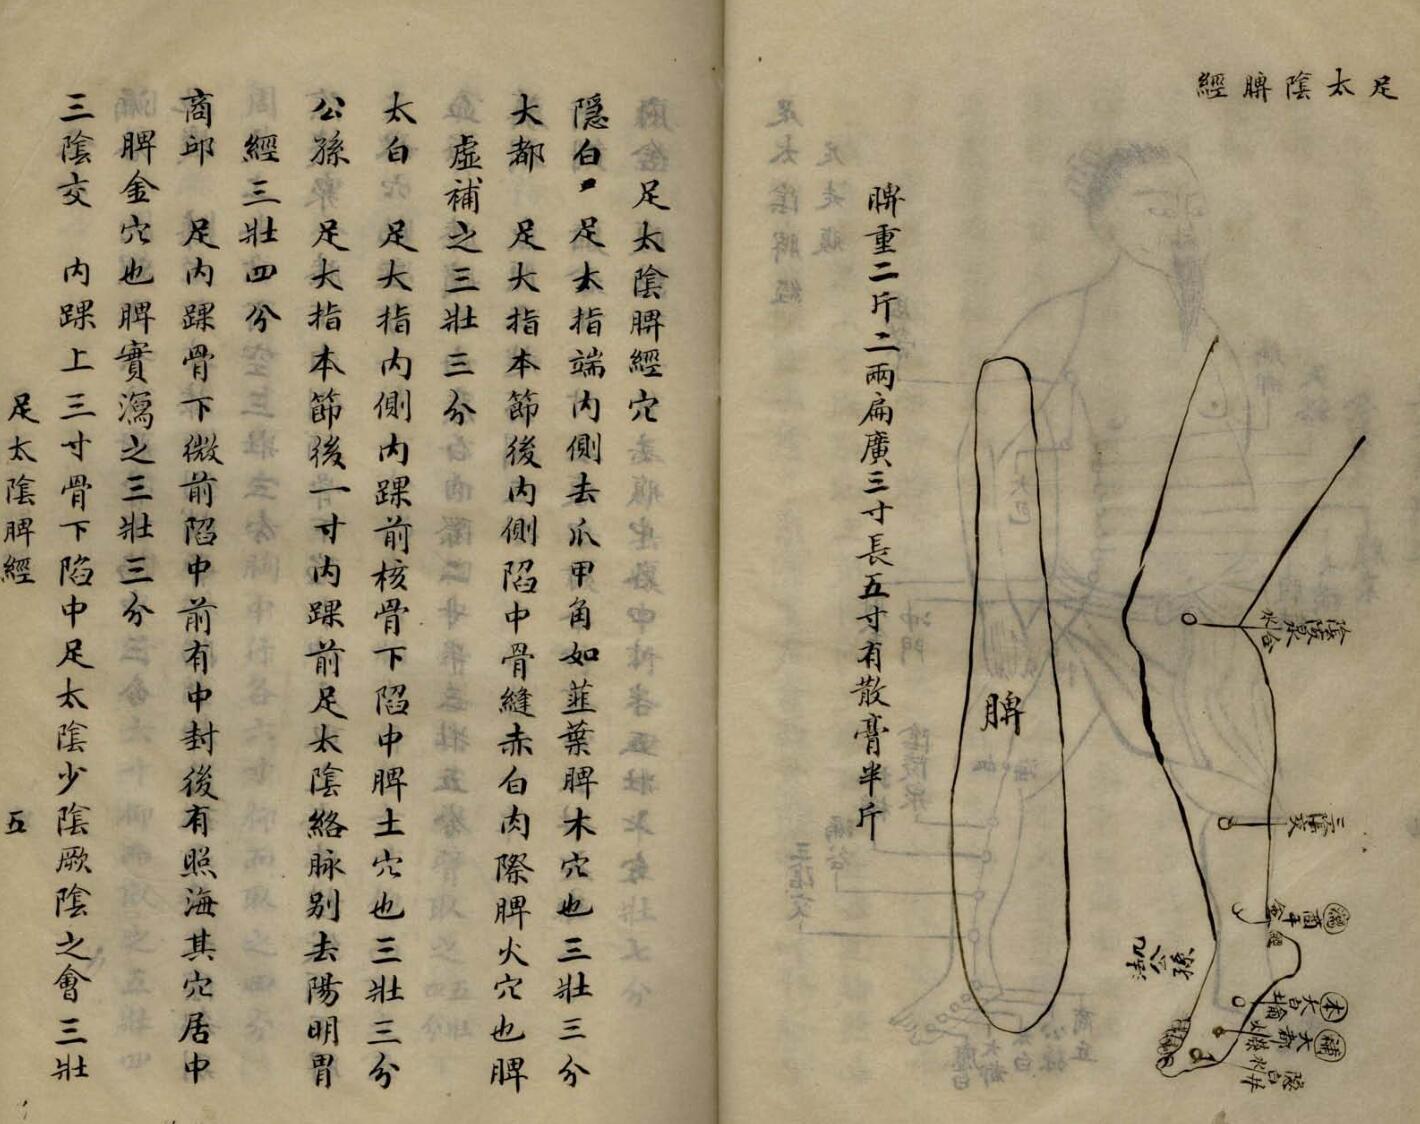 足太陰脾經
脾重二斤二兩扁廣三寸長五寸有散膏半斤
脾
陰陵泉 合水
三陰交
瀉 商丘 金
公孫
本 太白 土
補 大都 火
隱白 木 井
足太陰脾經穴
隱白 足大指端內側去爪甲角如韮葉脾木穴也三壯三分
大都 足大指本節後內側陷中骨縫赤白肉際脾火穴也脾
虛補之三壯三分
太白 足大指內側內踝前核骨下陷中脾土穴也三壯三分
公孫 足大指本節後一寸內踝前足太陰絡脉别去陽明胃
經三壯四分
商邱 足內踝骨下微前陷中前有中封後有照海其穴居中
脾金穴也脾實瀉之三壯三分
三陰交 內踝上三寸骨下陷中足太陰少陰厥陰之會三壯
足太陰脾經 五